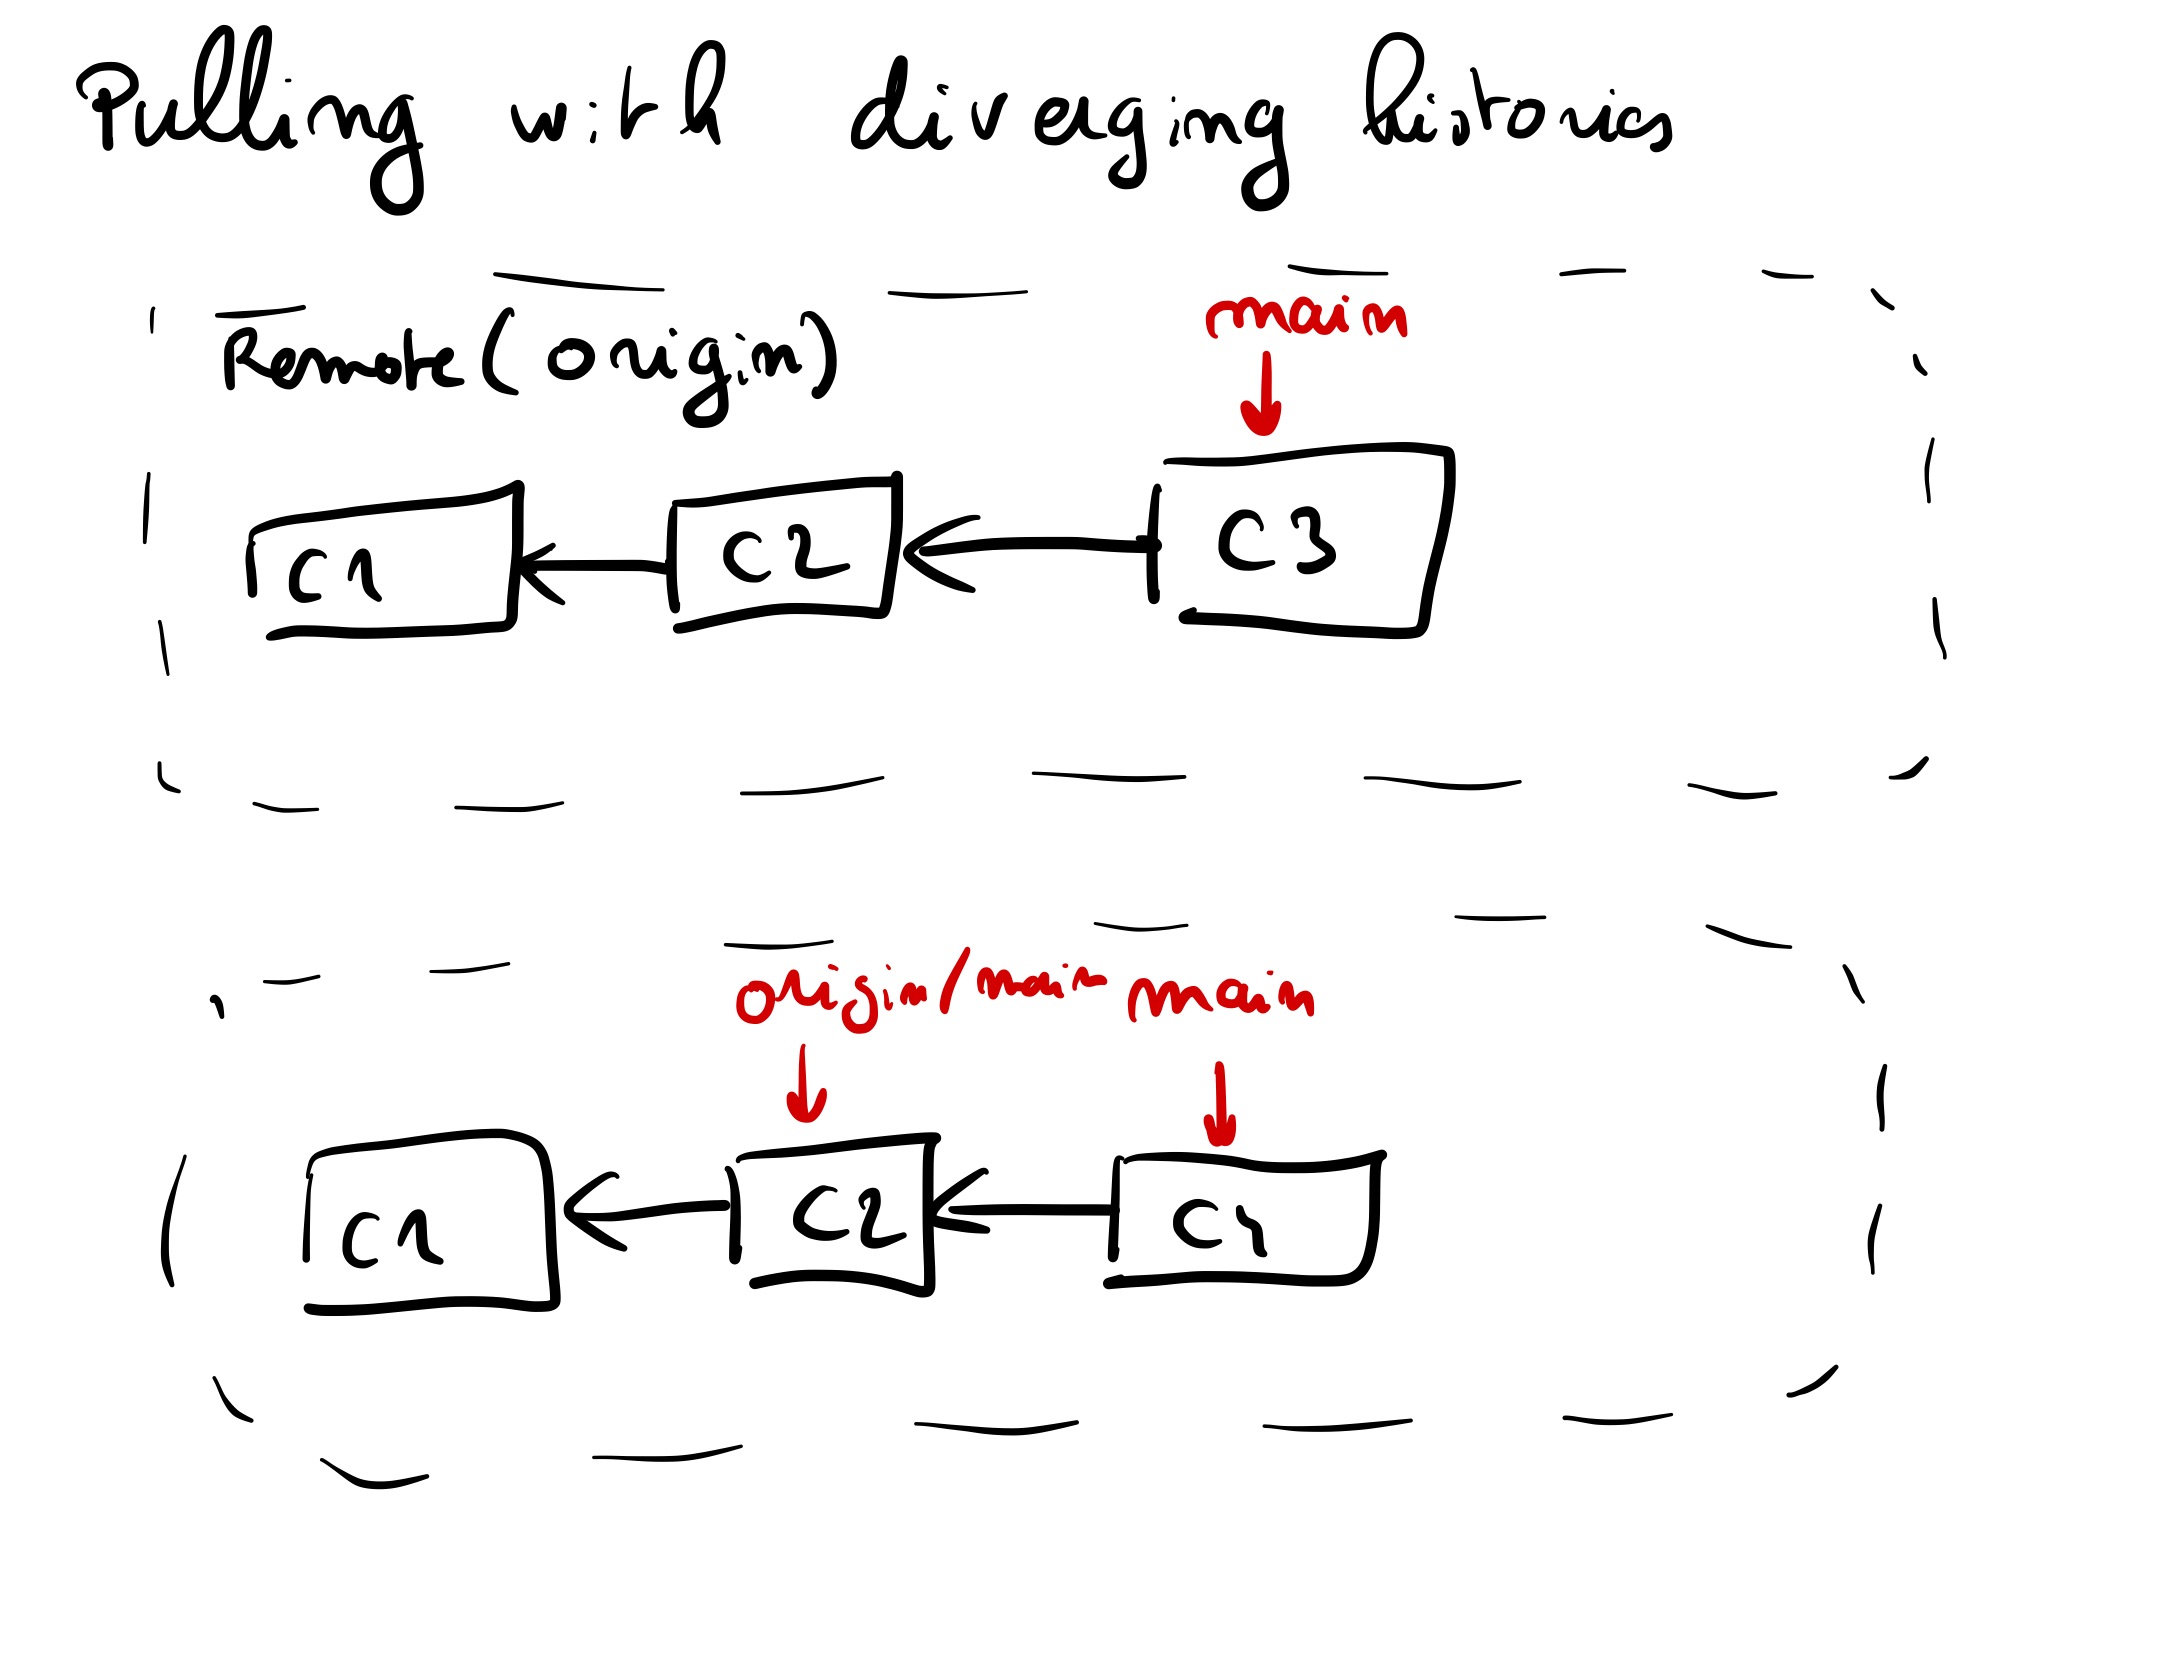 Pulling with diverging histories
main
Remote (origin)
C1 C2 C3
origin/main main
C1 C2 C4